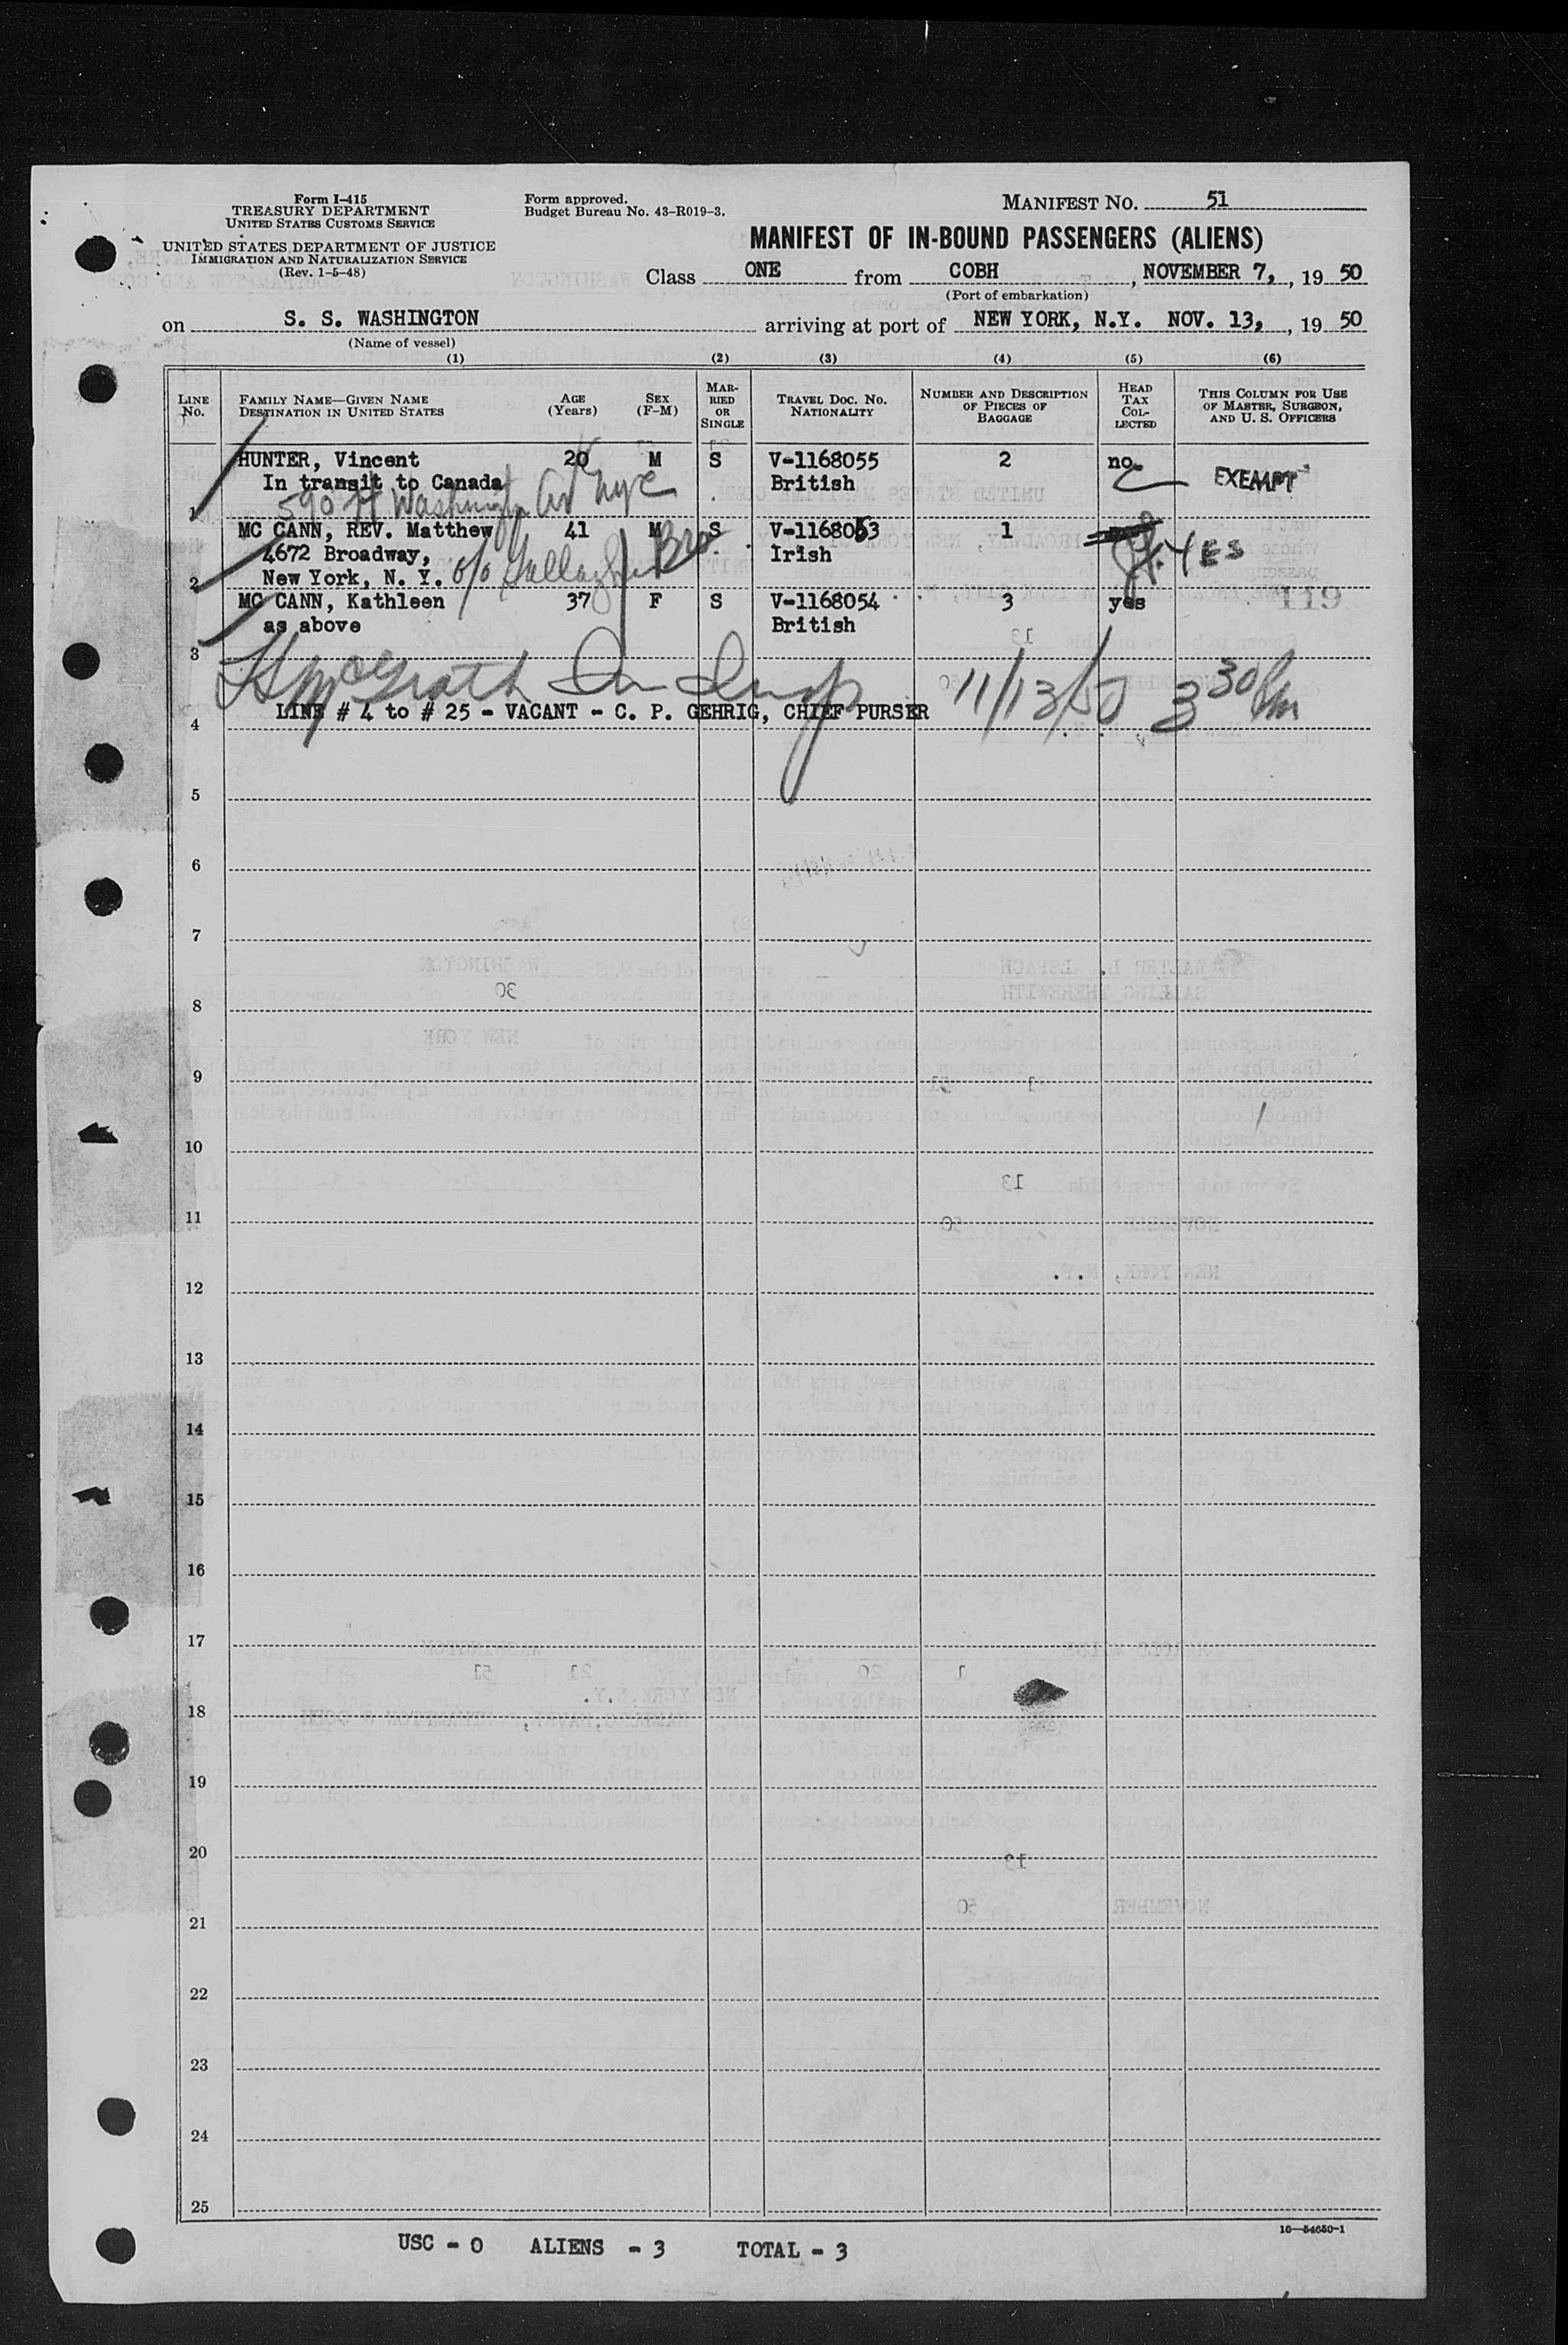 Form I-415
TREASURY DEPARTMENT
UNITED STATES CUSTOMS SERVICE
UNITED STATES DEPARTMENT OF JUSTICE
IMMIGRATION AND NATURALIZATION SERVICE
(Rev. 1-5-48)
Form approved.
Budget Bureau No. 43-R019-3.
MANIFEST NO. 51
MANIFEST OF IN-BOUND PASSENGERS (ALIENS)
Class ONE from COBH, NOVEMBER 7, , 19 50
(Port of embarkation)
on S. S. WASHINGTON arriving at port of NEW YORK, N.Y. NOV. 13, , 19 50
(Name of vessel)
(1) (2) (3) (4) (5) (6)
LINE No. FAMILY NAME—GIVEN NAME DESTINATION IN UNITED STATES AGE (Years) SEX (F-M) MARRIED OR SINGLE TRAVEL DOC. NO. NATIONALITY NUMBER AND DESCRIPTION OF PIECES OF BAGGAGE HEAD TAX COLLECTED THIS COLUMN FOR USE OF MASTER, SURGEON, AND U. S. OFFICERS
HUNTER, Vincent 20 M S V-1168055 2 no EXEMPT
In transit to Canada British
1 590 Ft Washington Av nyc
MC CANN, REV. Matthew 41 M S V-1168053 1 YES
4672 Broadway, Irish
2 New York, N. Y. c/o Gallagher Bro
MC CANN, Kathleen 37 F S V-1168054 3 yes 119
as above British
3
H McGrath Imm Insp 11/13/50 3 30 Pm
LINE # 4 to # 25 - VACANT - C. P. GEHRIG, CHIEF PURSER
4
5
6
7
8
9
10
11
12
13
14
15
16
17
18
19
20
21
22
23
24
25
16—54650-1
USC - 0 ALIENS - 3 TOTAL - 3